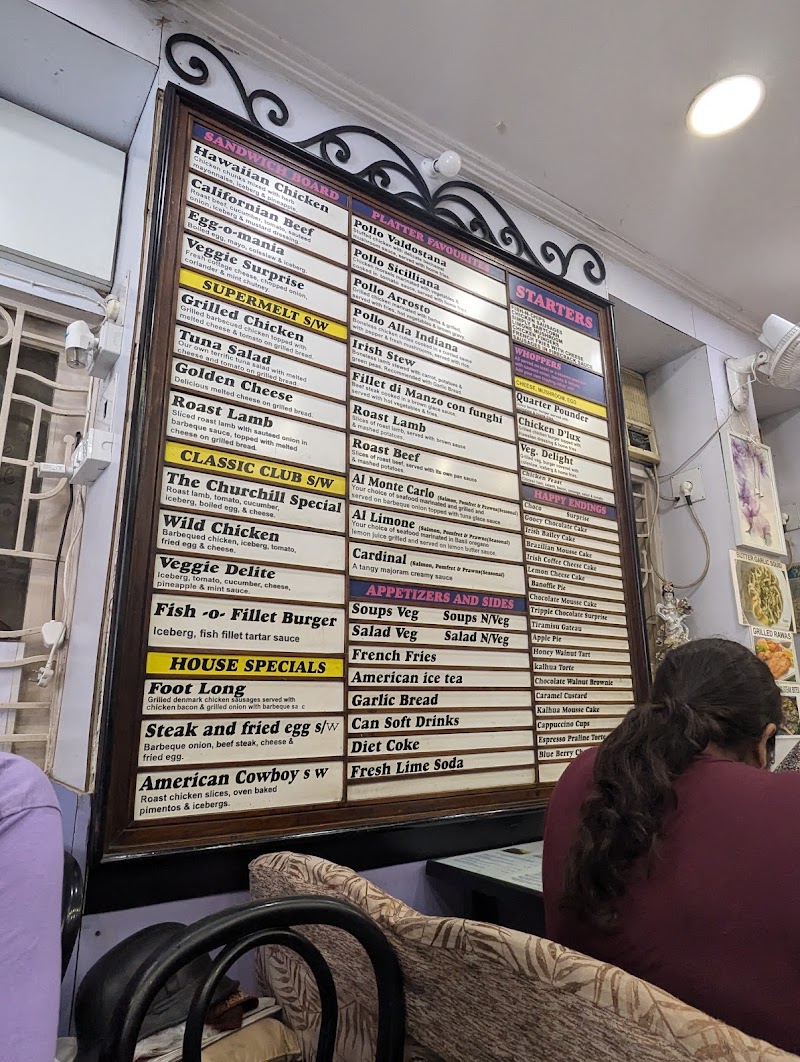 SANDWICH BOARD
Hawaiian Chicken
Chicken chunks mixed with herb
mayonnaise, iceberg & pineapple.
Californian Beef
Roast beef, cucumber, tomato, sauteed
onion, iceberg & mustard dressing.
Egg-o-mania
Boiled egg, mayo, coleslaw & iceberg.
Veggie Surprise
Fresh cottage cheese, chopped onion,
coriander & mint chutney.
SUPERMELT S/W
Grilled Chicken
Grilled barbecued chicken topped with
melted cheese & tomato on grilled bread.
Tuna Salad
Our own terrific tuna salad with melted
cheese and tomato on grilled bread.
Golden Cheese
Delicious melted cheese on grilled bread.
Roast Lamb
Sliced roast lamb with sauteed onion in
barbeque sauce, topped with melted
cheese on grilled bread.
CLASSIC CLUB S/W
The Churchill Special
Roast lamb, tomato, cucumber,
iceberg, boiled egg, & cheese.
Wild Chicken
Barbequed chicken, iceberg, tomato,
fried egg & cheese.
Veggie Delite
Iceberg, tomato, cucumber, cheese,
pineapple & mint sauce.
Fish -o- Fillet Burger
Iceberg, fish fillet tartar sauce
HOUSE SPECIALS
Foot Long
Grilled denmark chicken sausages served with
chicken bacon & grilled onion with barbeque sa c
Steak and fried egg s/w
Barbeque onion, beef steak, cheese &
fried egg.
American Cowboy s w
Roast chicken slices, oven baked
pimentos & icebergs.
PLATTER FAVOURITES
Pollo Valdostana
Pollo Sicilliana
Pollo Arrosto
Pollo Alla Indiana
Irish Stew
Fillet di Manzo con funghi
Beef steak cooked in a brown glace sauce,
served with hot vegetables & fries.
Roast Lamb
Slices of roast lamb, served with brown sauce
& mashed potatoes.
Roast Beef
Slices of roast beef, served with its own pan sauce
& mashed potatoes.
Al Monte Carlo (Salmon, Pomfret & Prawns(Seasonal)
Your choice of seafood marinated and grilled and
served on barbeque onion topped with tuna glace sauce.
Al Limone (Salmon, Pomfret & Prawns(Seasonal)
Your choice of seafood marinated in Basil oregano
lemon juice grilled and served on lemon butter sauce.
Cardinal (Salmon, Pomfret & Prawns(Seasonal)
A tangy majoram creamy sauce
APPETIZERS AND SIDES
Soups Veg Soups N/Veg
Salad Veg Salad N/Veg
French Fries
American ice tea
Garlic Bread
Can Soft Drinks
Diet Coke
Fresh Lime Soda
STARTERS
WHOPPERS
CHEESE, MUSHROOM, EGG
Quarter Pounder
Chicken D'lux
Veg. Delight
HAPPY ENDINGS
Choco Surprise
Gooey Chocolate Cake
Irish Bailey Cake
Brazilian Mousse Cake
Irish Coffee Cheese Cake
Lemon Cheese Cake
Banoffie Pie
Chocolate Mousse Cake
Tripple Chocolate Surprise
Tiramisu Gateau
Apple Pie
Honey Walnut Tart
kalhua Torte
Chocolate Walnut Brownie
Caramel Custard
Kalhua Mousse Cake
Cappuccino Cups
Espresso Praline Torte
Blue Berry Che
GRILLED RAWAS